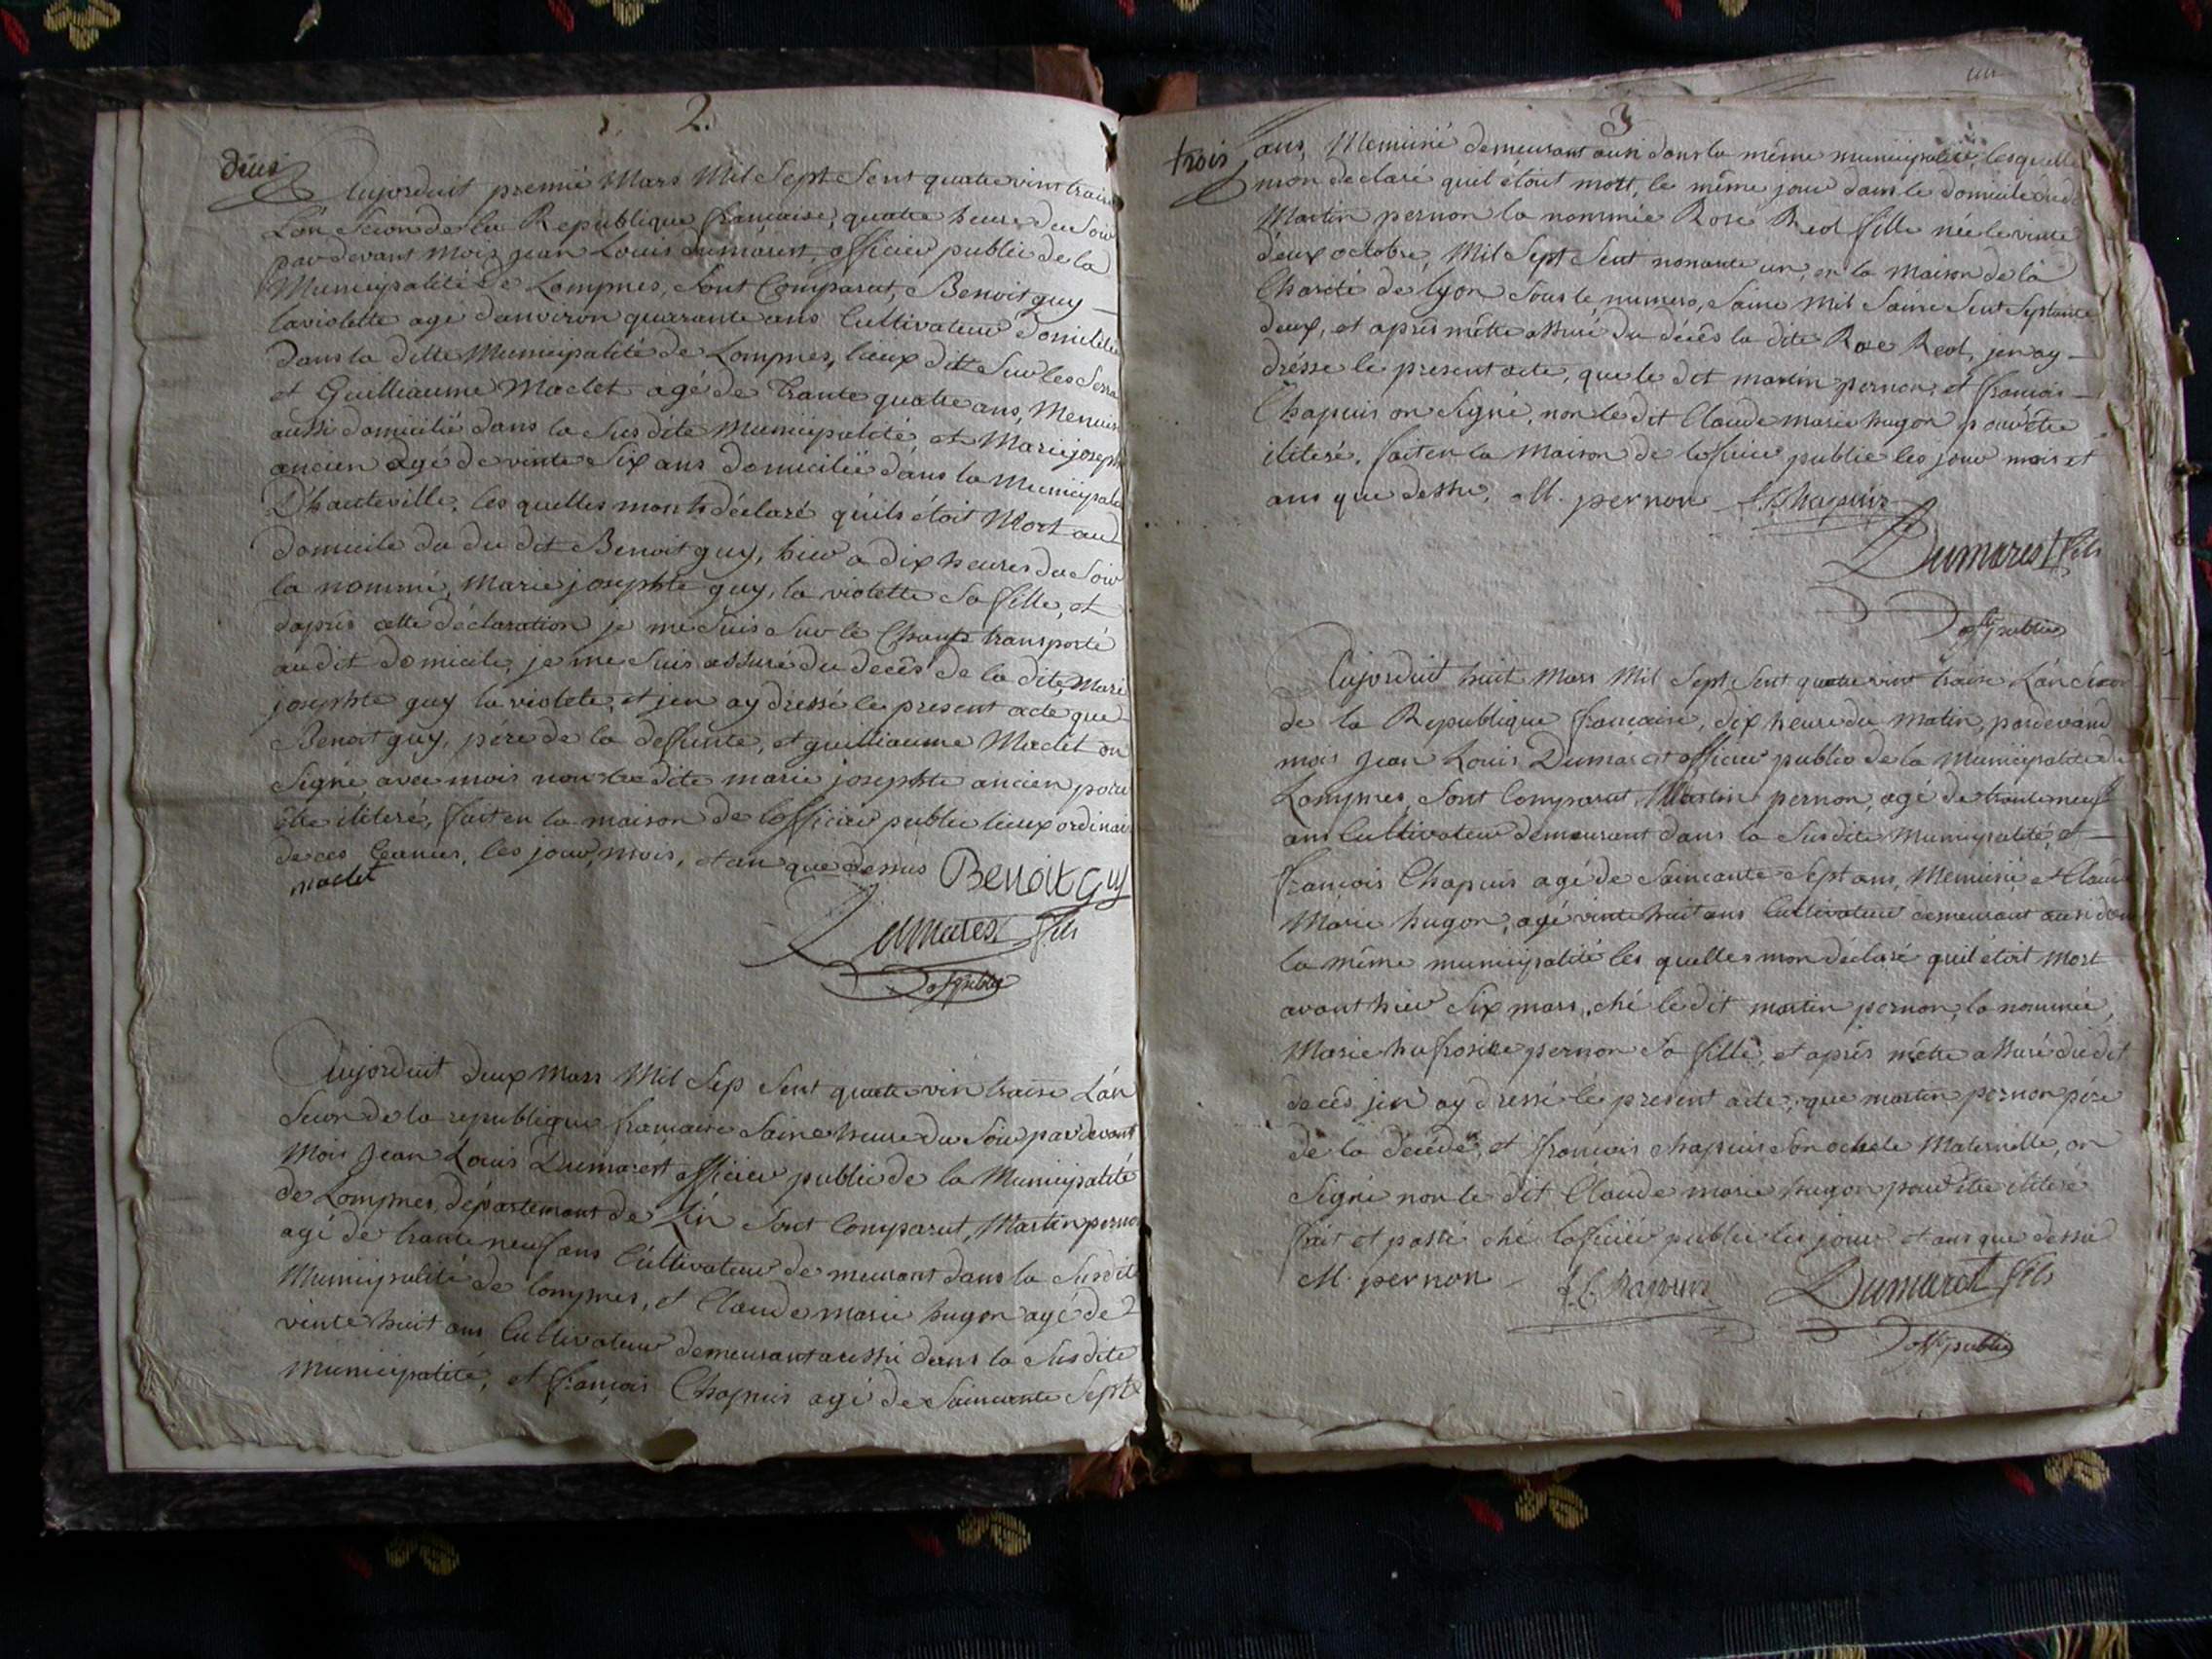 2.
deux
Aujorduit premié Mars Mil Sept Sent quatre vint traise
L'an Scion de la Republique francaise, quatre heure du Soir
par devant mois jean Louis dumarest officier public de la
Municipalité de Lompnes, Sont Comparut, Benoit guy
laviolette age danviron quarante ans Cultivateur domicilié
dans la ditte Municipalité de Lompnes, lieux dit Sur les Serra
et Guilliaume Maclet agé de trante quatre ans, Menuisié
aussi domicilié dans la Susdite Municipalité, et Marie joseph
ancien agé de vinte Six ans domiciliée dans la Municipalité
D'hauteville, les quelles m'on déclaré quils étoit Mort au
domicile du du dit Benoit guy, hier a dix heures du Soir
la nommé, Marie josephte guy, la violette Sa fille, et
dapres cette déclaration je me Suis Sur le Champ transporté
au dit domicile, je me Suis assuré du decès de la dite, Marie
josephte guy la violete, et jen ay dressé le present acte que
Benoit guy, pére de la deffunte, et guilliaume Maclet on
Signé avec mois non la dite marie josephte ancien pour
étre iliteré, fait en la maison de lofficier public lieux ordinaire
de ces Ceances, les jour, mois, et an que dessus Benoit guy
maclet
Dumarest fils
off public
Aujorduit deux Mars Mil Sep Sent quatre vin traise L'an
Scion de la republique francaise Saine heure du Soir par devant
Mois Jean Louis Dumarest officier public de la Municipalité
de Lompnes, département de L'in Sont Comparut, Martin pernon
agé de trante neuf ans Cultivateur de meurant dans la Susdite
Municipalité de lompnes, et Claude marie hugon agé de
vinte huit ans Cultivateur demeurant aussi dans la Susdite
Municipalité, et françois Chapuis agé de Saincante Sept
3
trois
ans, Menuisié demeurant ausi dans la même municipalité, lesquelle
mon declaré quil étoit mort, le même jour dans le domicile du dit
Martin pernon la nommée Rose Reol fille née le vinte
deux octobre Mil Sept Sent nonante un, en la Maison de la
Charité de lyon Sous le numero, Saine Mil Saine Sent Septante
deux, et aprés mêttre assuré du décès la dite Rose Reol, jen ay
dresse le present acte, que le dit martin pernon, et francois
Chapuis on Signé, non le dit Claude marie hugon pour étre
ilitéré, fait en la Maison de loficier public les jour mois et
ans que dessu, M. pernon f. Chapuis
Dumarest fils
off public
Aujorduit huit Mars Mil Sept Sent quatre vint traise L'an Scion
de la Republique francaise, dix heure du matin, pardevand
mois Jean Louis Dumarest officier public de la Municipalité de
Lompnes, Sont Comparut Martin pernon, agé de trante neuf
ans Cultivateur demeurant dans la Susdite Municipalité, et
francois Chapuis agé de Saincante Sept ans, Menuisié, et Claude
Marie hugon, agé vinte huit ans Cultivateur demeurant ausi dans
la même municipalité les quelles mon déclaré quil étoit Mort
avant hier Six mars, ché le dit martin pernon, la nommée
Marie hufrosine pernon Sa fille, et aprés mêttre assuré du dit
decés jen ay dressé le present acte, que martin pernon pére
de la décédé, et francois chapuis Son oncle Maternelle, on
Signé non le dit Claude marie hugon pour étre ilitéré
fait et passé ché loficier public les jour et ans que dessu
M. pernon f. Chapuis Dumarest fils
off public